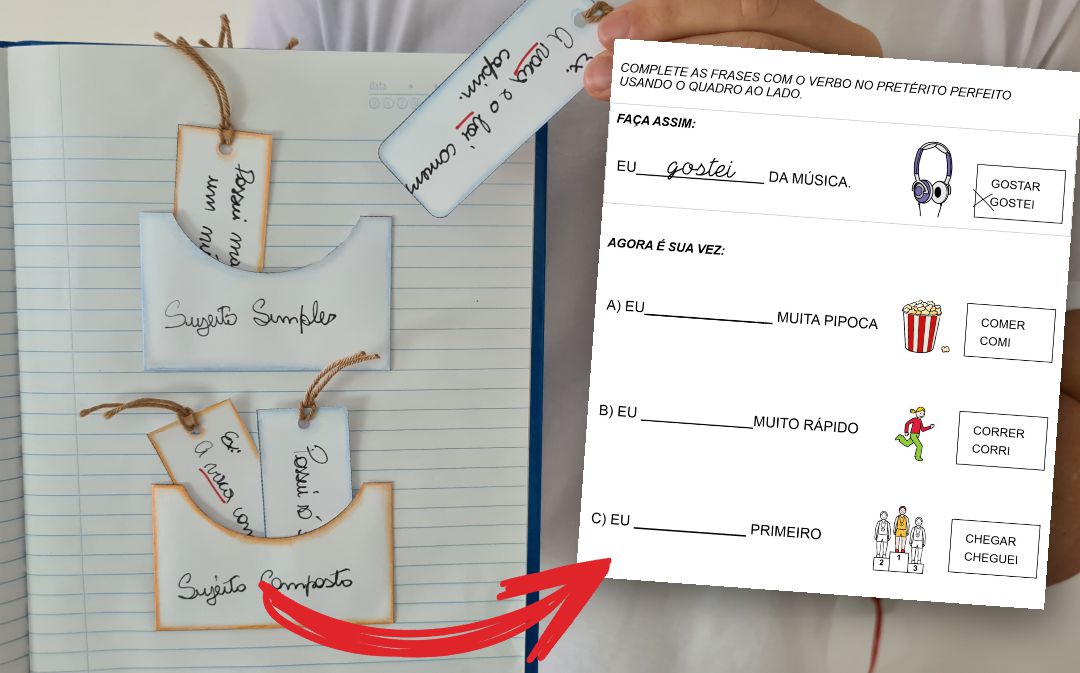 data
Ex:
A vaca e o boi comem
capim.
Possui ma
um nú
Sujeito Simples
Ex:
A vaca com
Possui só
Sujeito Composto
COMPLETE AS FRASES COM O VERBO NO PRETÉRITO PERFEITO
USANDO O QUADRO AO LADO.
FAÇA ASSIM:
EU gostei DA MÚSICA.
GOSTAR
GOSTEI
AGORA É SUA VEZ:
A) EU MUITA PIPOCA
COMER
COMI
B) EU MUITO RÁPIDO
CORRER
CORRI
C) EU PRIMEIRO
2 1 3
CHEGAR
CHEGUEI